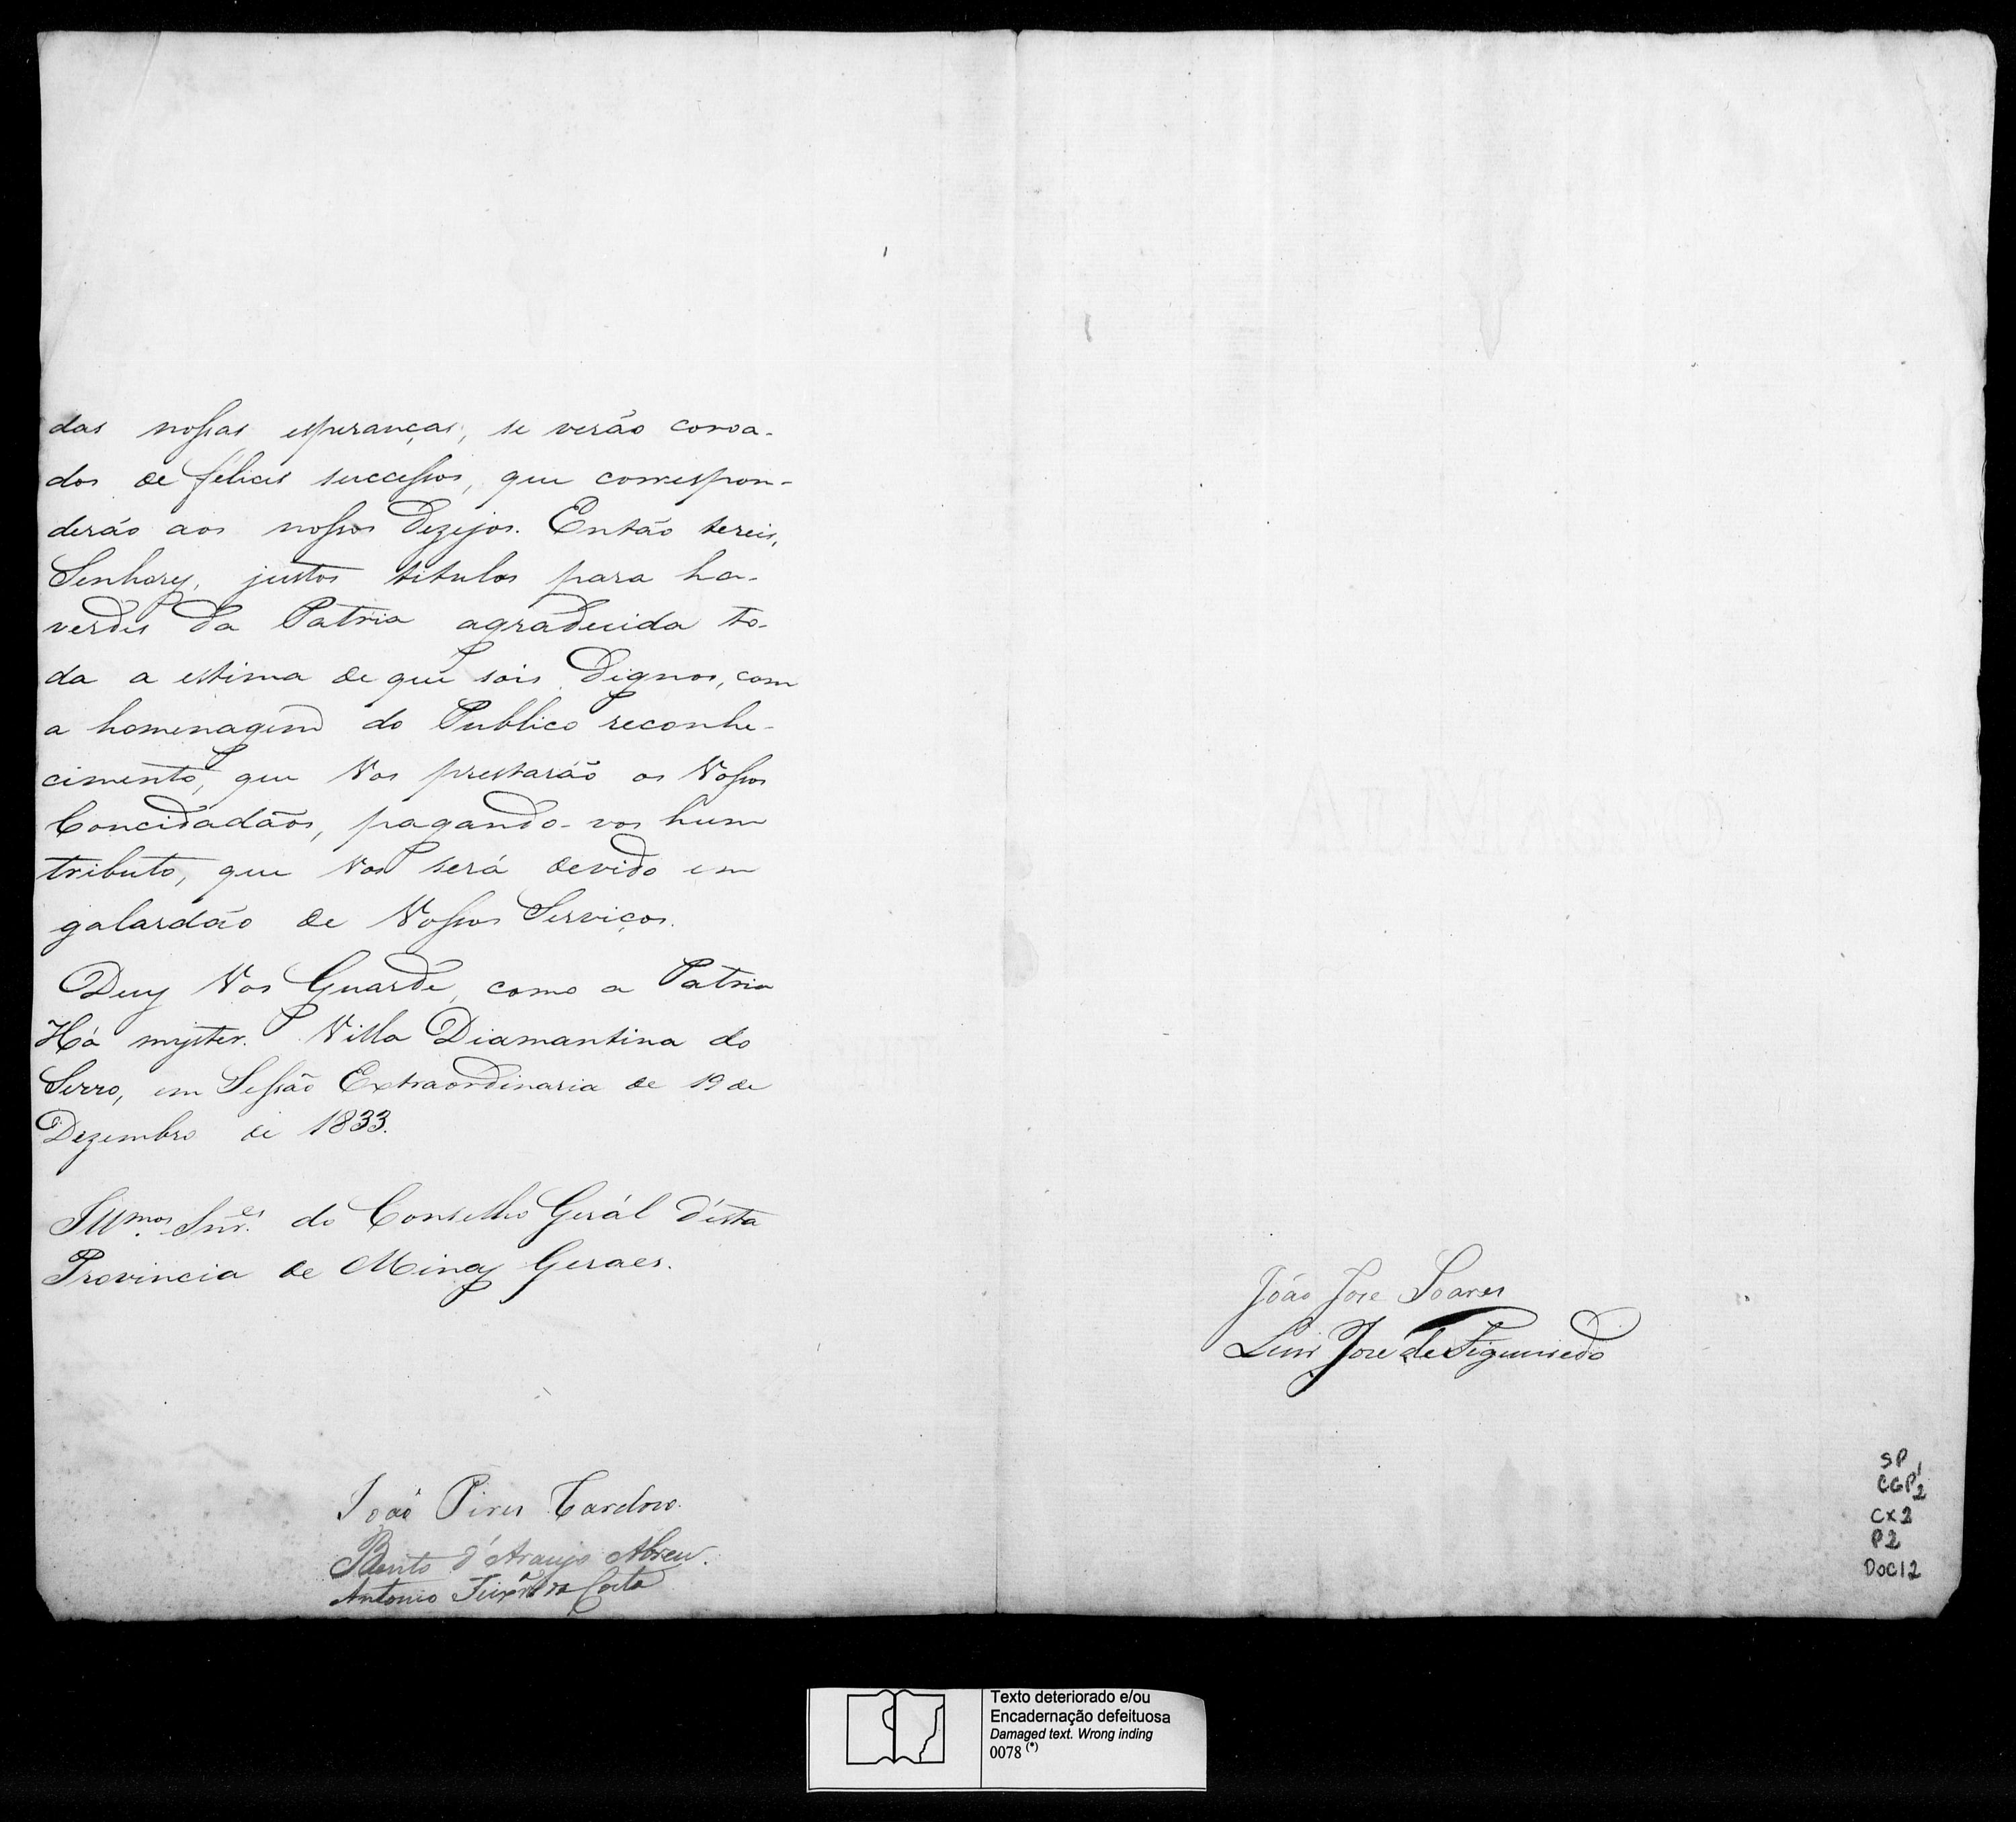 das nossas esperanças, se verão coroa-
dos de felices successos, que correspon-
derão aos nossos Dezejos. Então tereis,
Senhores, justos titulos para ha-
verdes da Patria agradecida to-
da a estima de que sois Dignos, com
a homenagem do Publico reconhe-
cimento, que Vos prestarão os Vossos
Concidadãos, pagando-vos hum
tributo, que Vos será devido em
galardão de Vossos Serviços.
Deus Vos Guarde, como a Patria
Há myster. Villa Diamantina do
Serro, em Sessão Extraordinaria de 19 de
Dezembro de 1833.
Illmos. Snres. do Conselho Gerál d'ésta
Provincia de Minas Geraes.
João Pires Cardoso.
Bento d'Araujo Abreu.
Antonio da Costa
João Jose Soares
Luis Jose de Figueiredo
SP
CGP 1/2
CX2
P2
Doc12
Texto deteriorado e/ou
Encadernação defeituosa
Damaged text. Wrong inding
0078 (*)